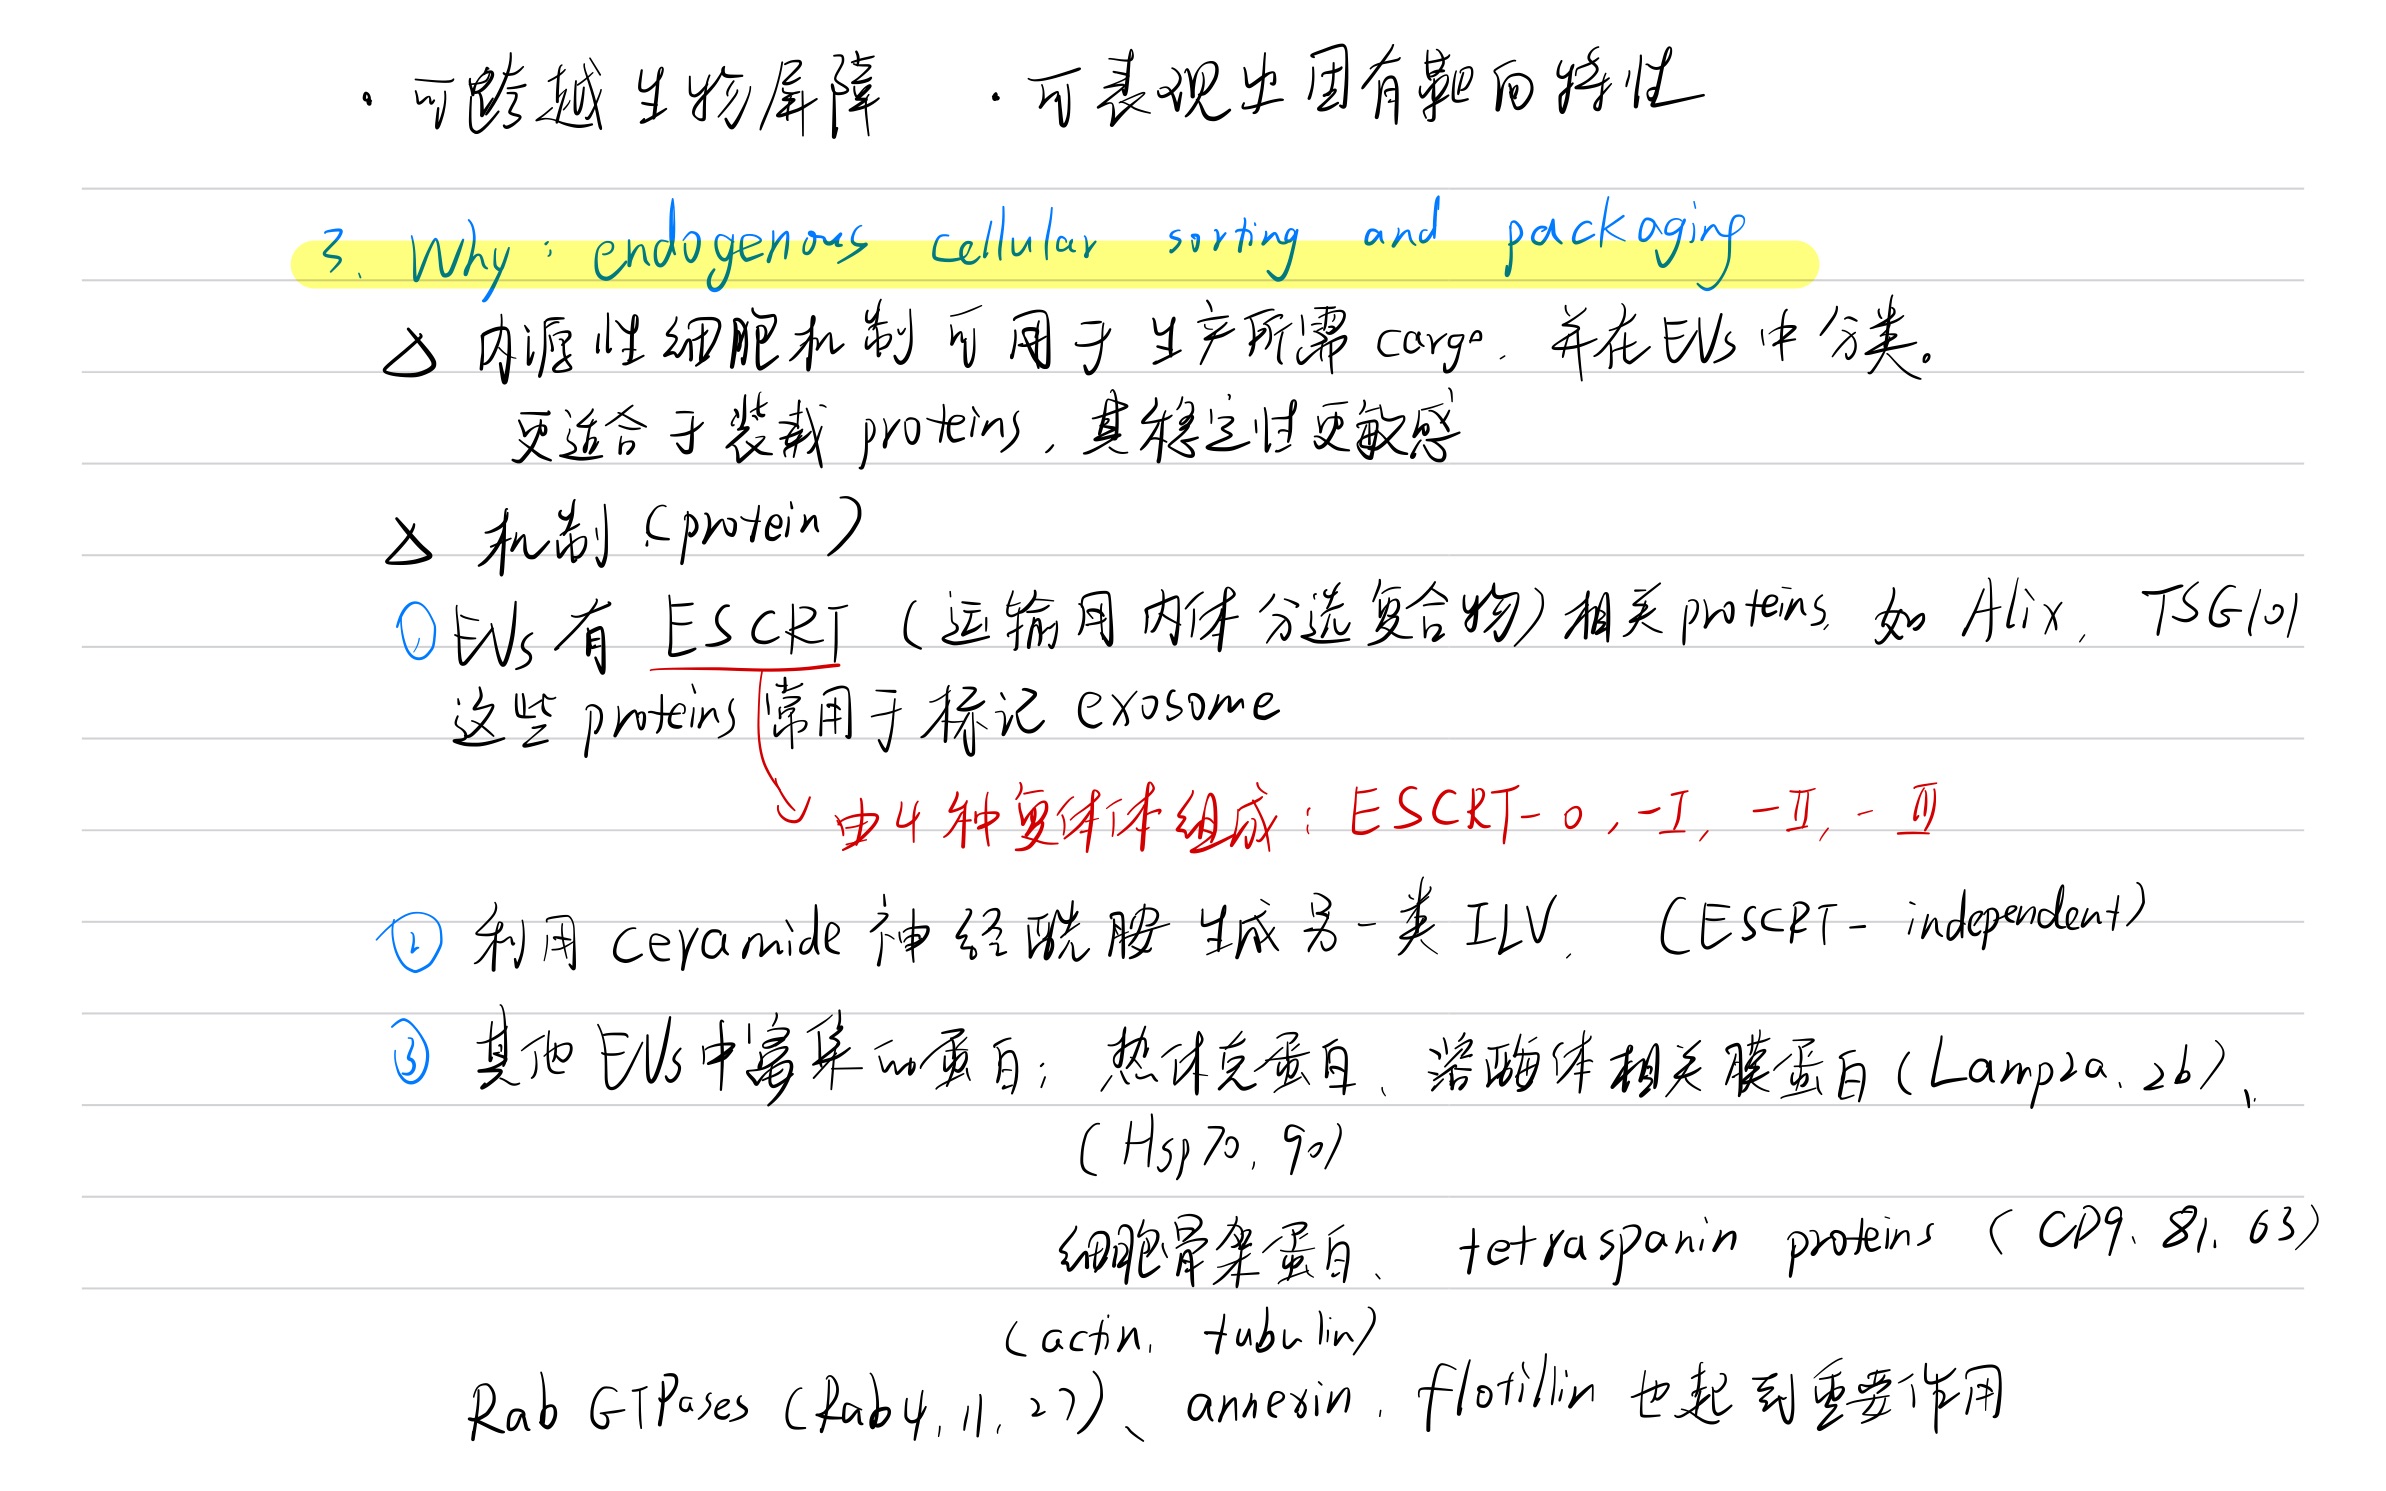 ·可跨越生物屏障 ·可表现出固有靶向特性
3. Why: endogenous cellular sorting and packaging
△ 内源性细胞机制可用于生产所需cargo. 并在EVs中分类。
更适合于装载 proteins, 其稳定性更敏感
△ 机制 (protein)
① EVs有 ESCRT (运输用内体分选复合物) 相关proteins, 如 Alix, TSG101
这些 proteins 常用于标记 exosome
由4种复体体组成: ESCRT-0, -I, -II, -III
② 利用 ceramide 神经酰胺 生成另一类 ILV. (ESCRT-independent)
③ 其他 EVs中富集的蛋白: 热休克蛋白、溶酶体相关膜蛋白 (Lamp2a、2b)、
(Hsp70, 90)
细胞骨架蛋白、 tetraspanin proteins (CD9、81、63)
(actin, tubulin)
Rab GTPases (Rab4, 11, 27)、annexin, flotillin 也起到重要作用